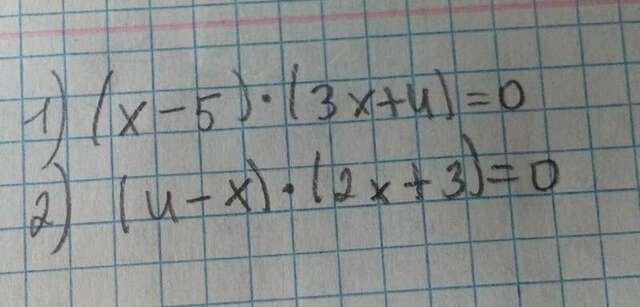 1) (x-5)·(3x+4)=0
2) (4-x)·(2x+3)=0